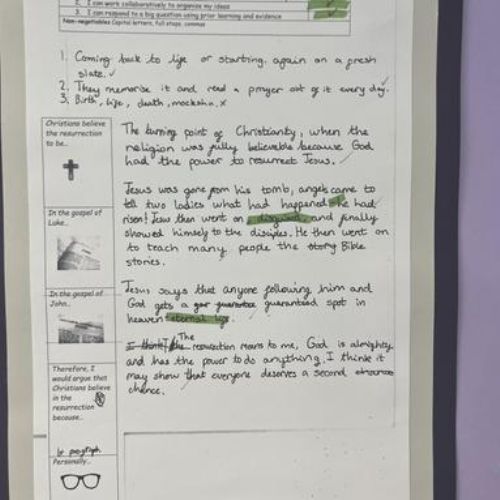 2. I can work collaboratively to organise my ideas
3. I can respond to a big question using prior learning and evidence
Non-negotiables Capital letters, full stops, commas
1. Coming back to life or starting again on a fresh
slate. ✓
2. They memorise it and read a prayer out of it every day.
3. Birth, life, death, mocksha. x
Christians believe
the resurrection
to be...
The turning point of Christianity, when the
religion was fully believable because God
had the power to resurrect Jesus.
In the gospel of
Luke...
Jesus was gone from his tomb, angels came to
tell two ladies what had happened - he had
risen! Jesus then went on disguised, and finally
showed himself to the disciples. He then went on
to teach many people the story Bible
stories.
In the gospel of
John...
Jesus says that anyone following him and
God gets a guaranteed spot in
heaven eternal life.
Therefore, I
would argue that
Christians believe
in the
resurrection
because...
I think the The resurrection means to me, God is almighty
and has the power to do anything. I think it
may show that everyone deserves a second chance
chance.
Personally...